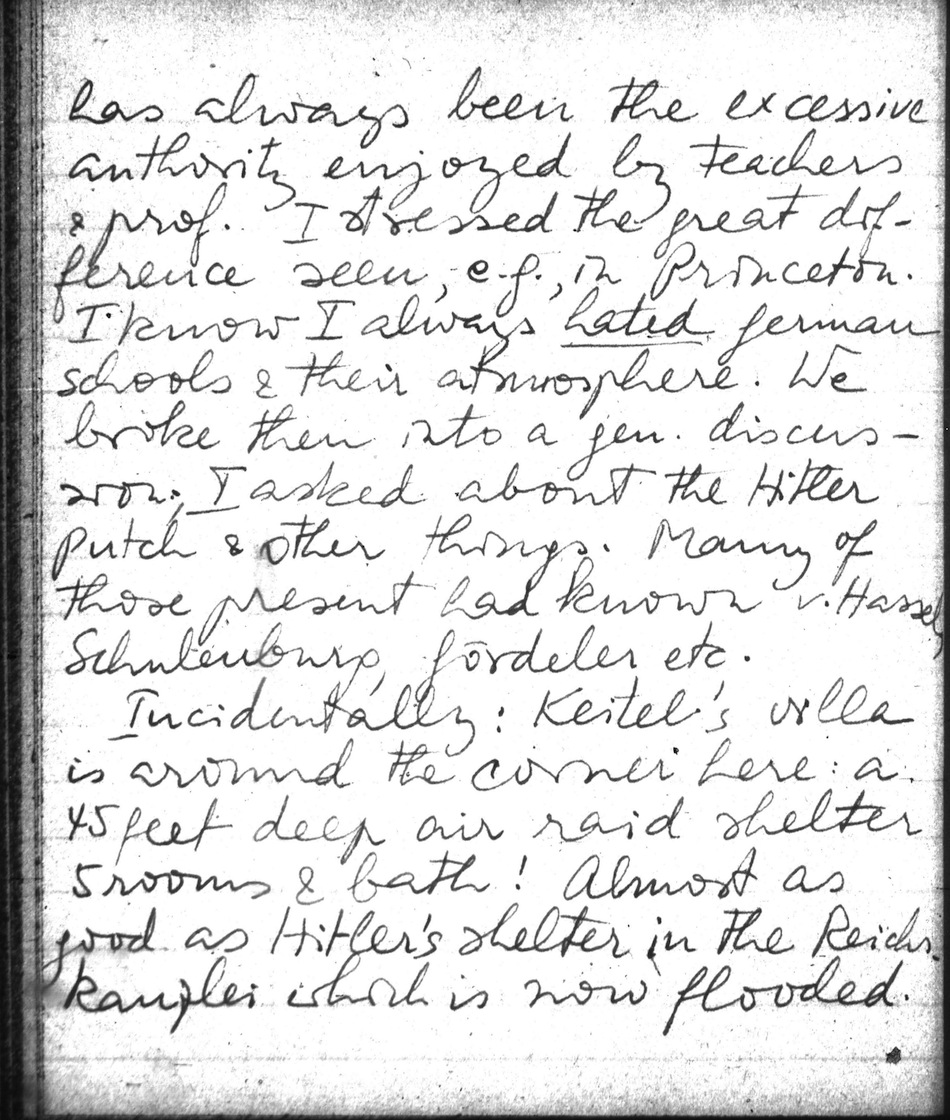 has always been the excessive
authority enjoyed by teachers
& prof. I stressed the great dif-
ference seen, e.g., in Princeton.
I know I always hated german
schools & their atmosphere. We
broke then into a gen. discus-
sion; I asked about the Hitler
putch & other things. Many of
those present had known v. Hassel,
Schulenburg, Gördeler etc.
Incidentally: Keitel's villa
is around the corner here: a
45 feet deep air raid shelter
5 rooms & bath! Almost as
good as Hitler's shelter in the Reichs-
kanzlei which is now flooded.